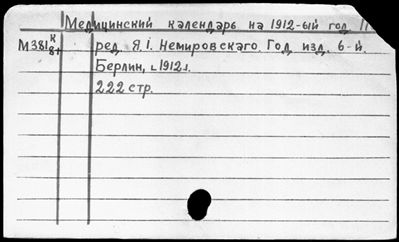 Медицинский календарь на 1912-ый год
М381 к/8+ ред. Я.І. Немировскаго. Год изд. 6-й.
Берлин, ⌞1912⌟.
222 стр.